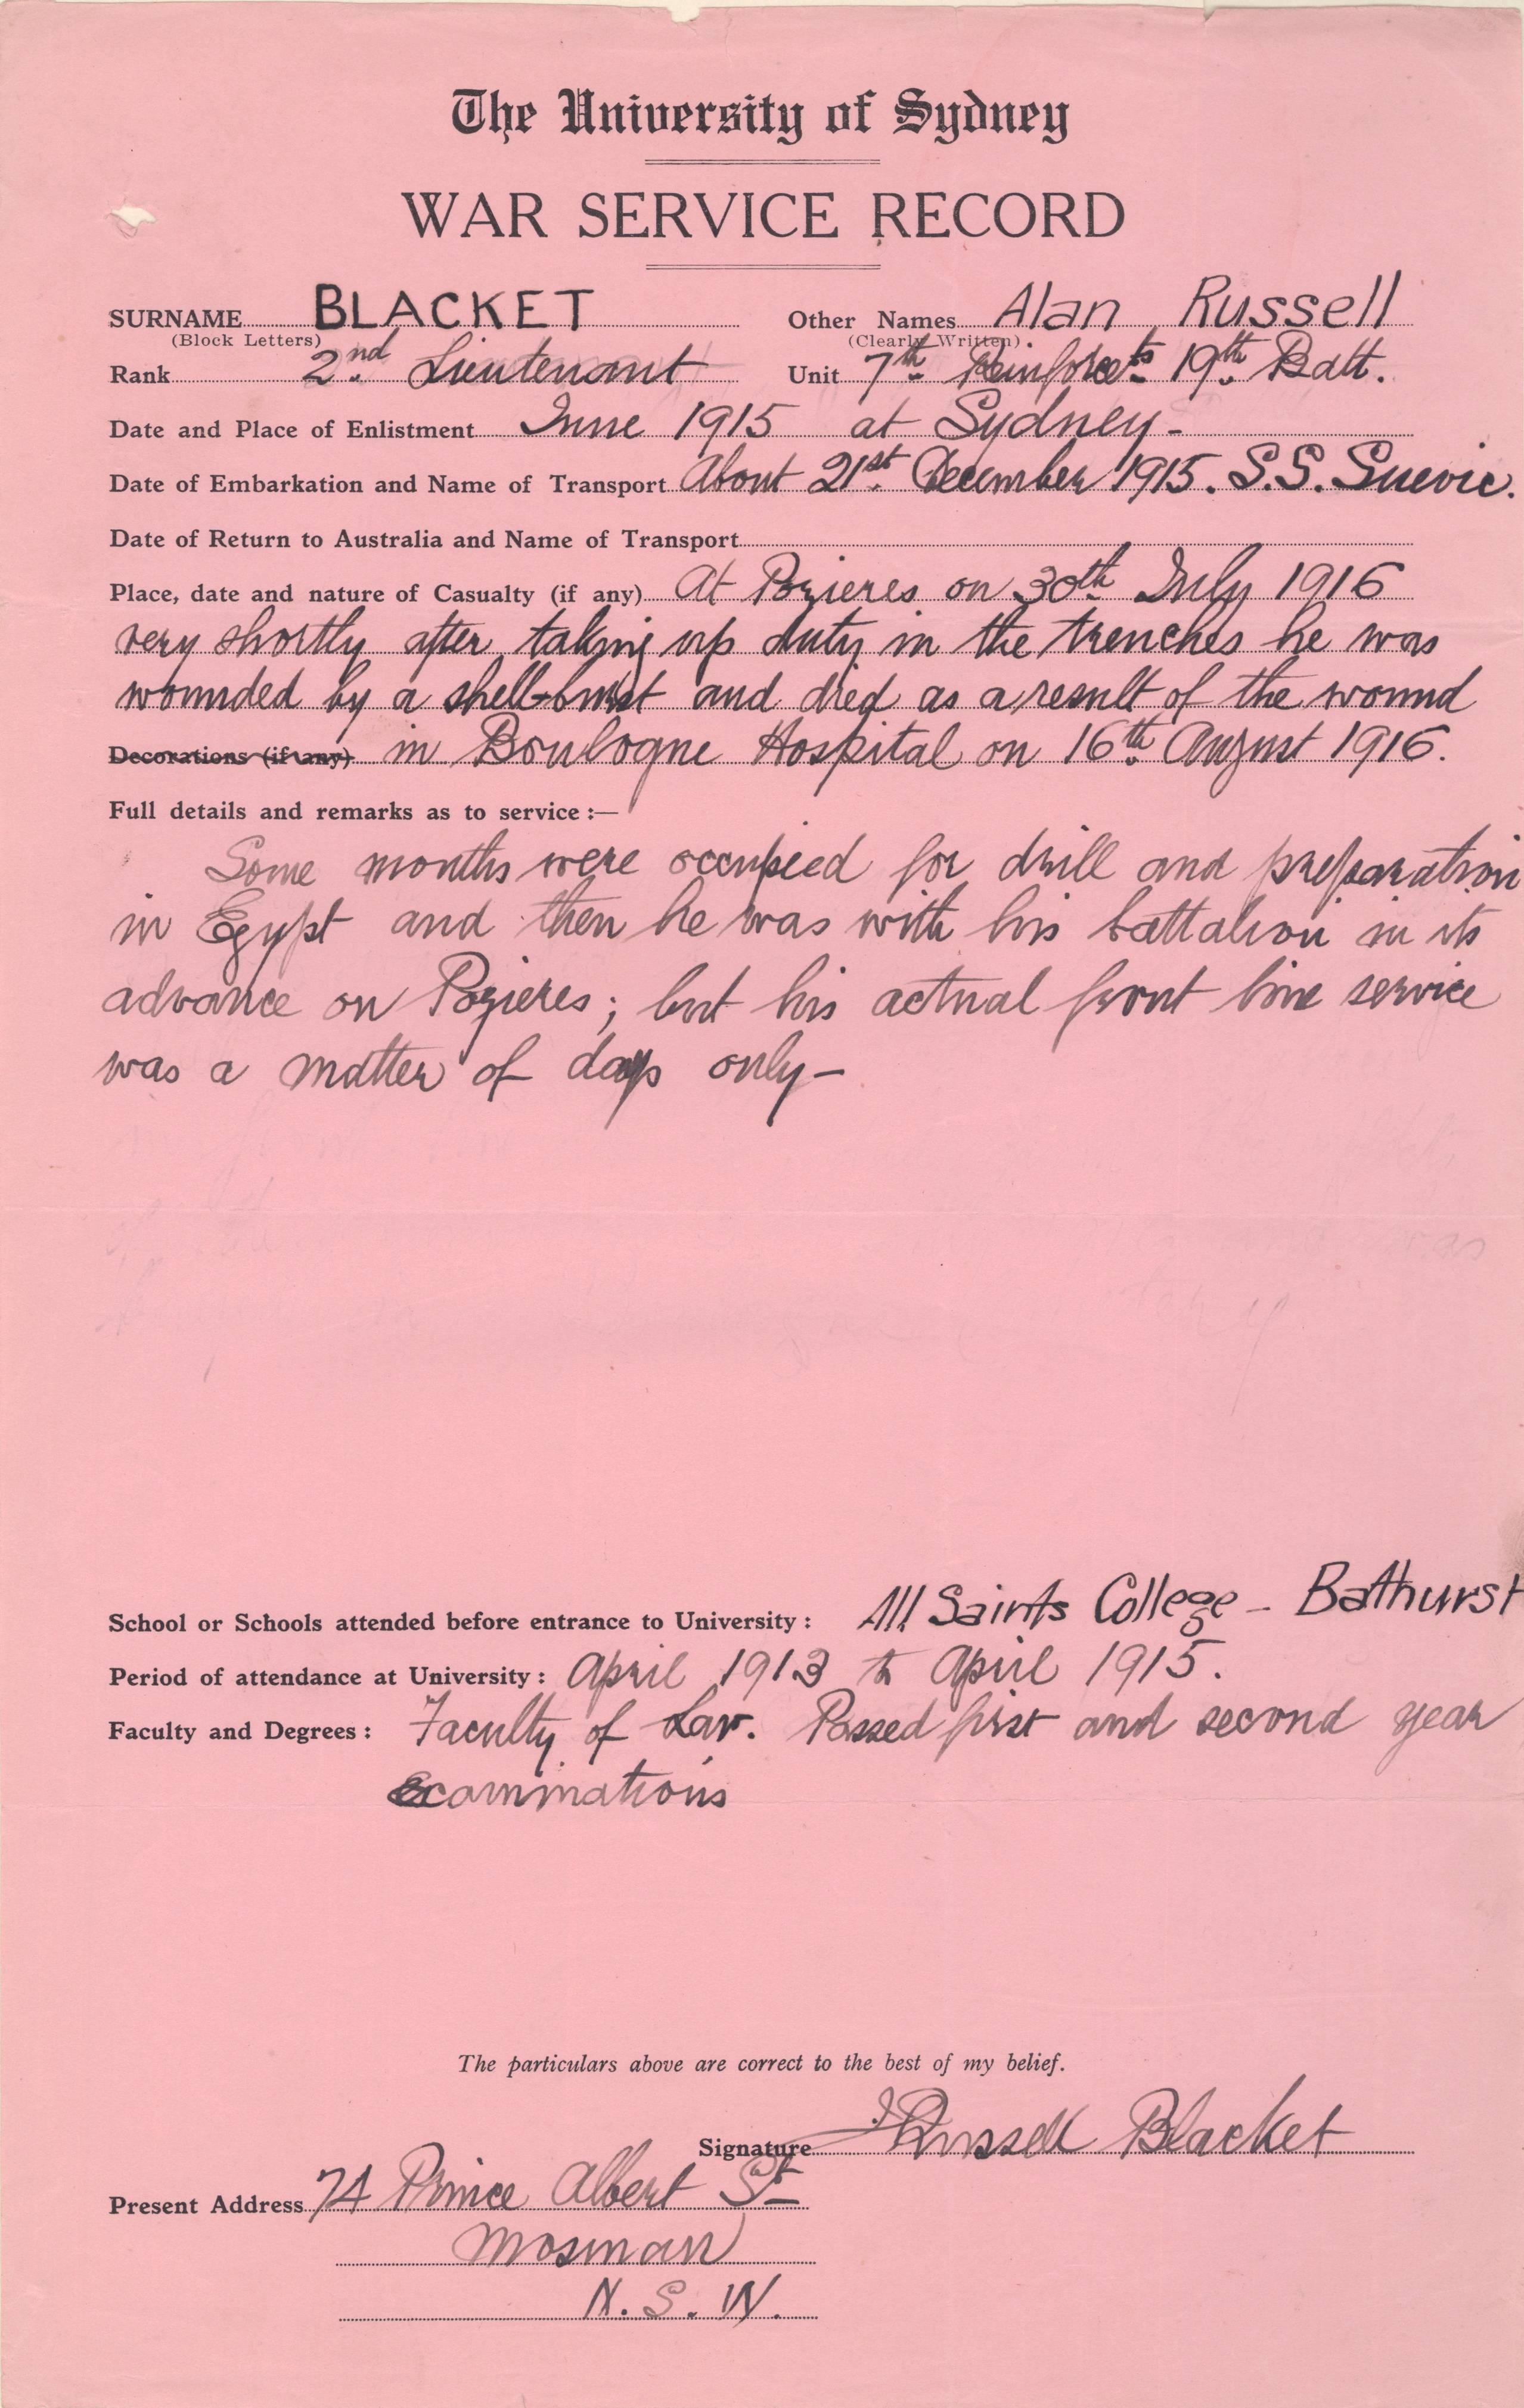 The University of Sydney
WAR SERVICE RECORD
SURNAME BLACKET Other Names Alan Russell
(Block Letters) (Clearly Written)
Rank 2nd Lieutenant Unit 7th Reinforcets 19th Batt.
Date and Place of Enlistment June 1915 at Sydney -
Date of Embarkation and Name of Transport About 21st December 1915. S.S. Suevic.
Date of Return to Australia and Name of Transport
Place, date and nature of Casualty (if any) At Pozieres on 30th July 1916
very shortly after taking up duty in the trenches he was
wounded by a shell-burst and died as a result of the wound
Decorations (if any) in Boulogne Hospital on 16th August 1916.
Full details and remarks as to service :—
Some months were occupied for drill and preparation
in Egypt and then he was with his battalion in its
advance on Pozieres; but his actual front line service
was a matter of days only -
School or Schools attended before entrance to University : All Saints College - Bathurst
Period of attendance at University : April 1913 to April 1915.
Faculty and Degrees : Faculty of Law. Passed first and second year
examinations
The particulars above are correct to the best of my belief.
Signature Russell Blacket
Present Address 74 Prince Albert St
Mosman
N.S.W.